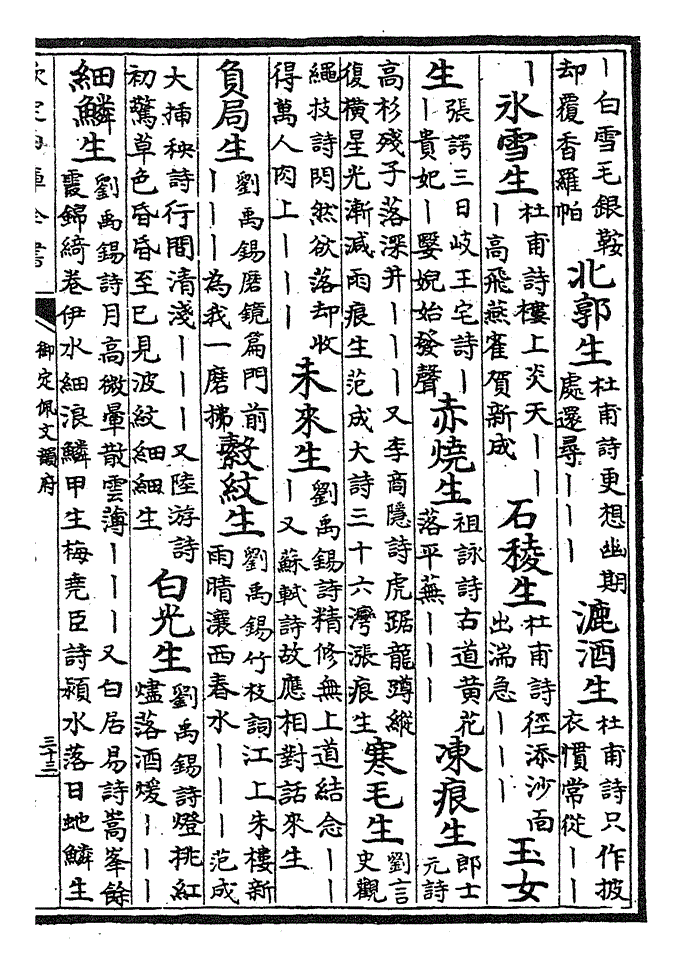 丨白雪毛銀鞍却覆香羅帕 北郭生 杜甫詩更想幽期處還尋丨丨丨 漉酒生 杜甫詩只作披衣慣常從丨丨
丨 氷雪生 杜甫詩樓上炎天丨丨丨高飛燕雀賀新成 石稜生 杜甫詩徑添沙面出湍急丨丨丨 玉女
生 張諤三日岐王宅詩丨丨貴妃丨嫛婗始發聲 赤燒生 祖詠詩古道黃花落平蕪丨丨丨 凍痕生 郎士元詩
高杉殘子落深井丨丨丨又李商隱詩虎踞龍蹲縱復橫星光漸減雨痕生范成大詩三十六灣漲痕生 寒毛生 劉言史觀
繩技詩閃然欲落却收得萬人肉上丨丨丨 未來生 劉禹錫詩精修無上道結念丨丨又蘇軾詩故應相對話來生
負局生 劉禹錫磨鏡篇門前丨丨丨為我一磨拂 縠紋生 劉禹錫竹枝詞江上朱樓新雨晴瀼西春水丨丨丨范成
大揷秧詩行間清淺丨丨丨又陸游詩初驚草色昏昏至已見波紋細細生 白光生 劉禹錫詩燈挑紅燼落酒煖丨丨丨
細鱗生 劉禹錫詩月高微暈散雲薄丨丨丨又白居易詩嵩峯餘霞錦綺卷伊水細浪鱗甲生梅堯臣詩潁水落日虵鱗生
欽定四庫全書 御定佩文韻府 三十三